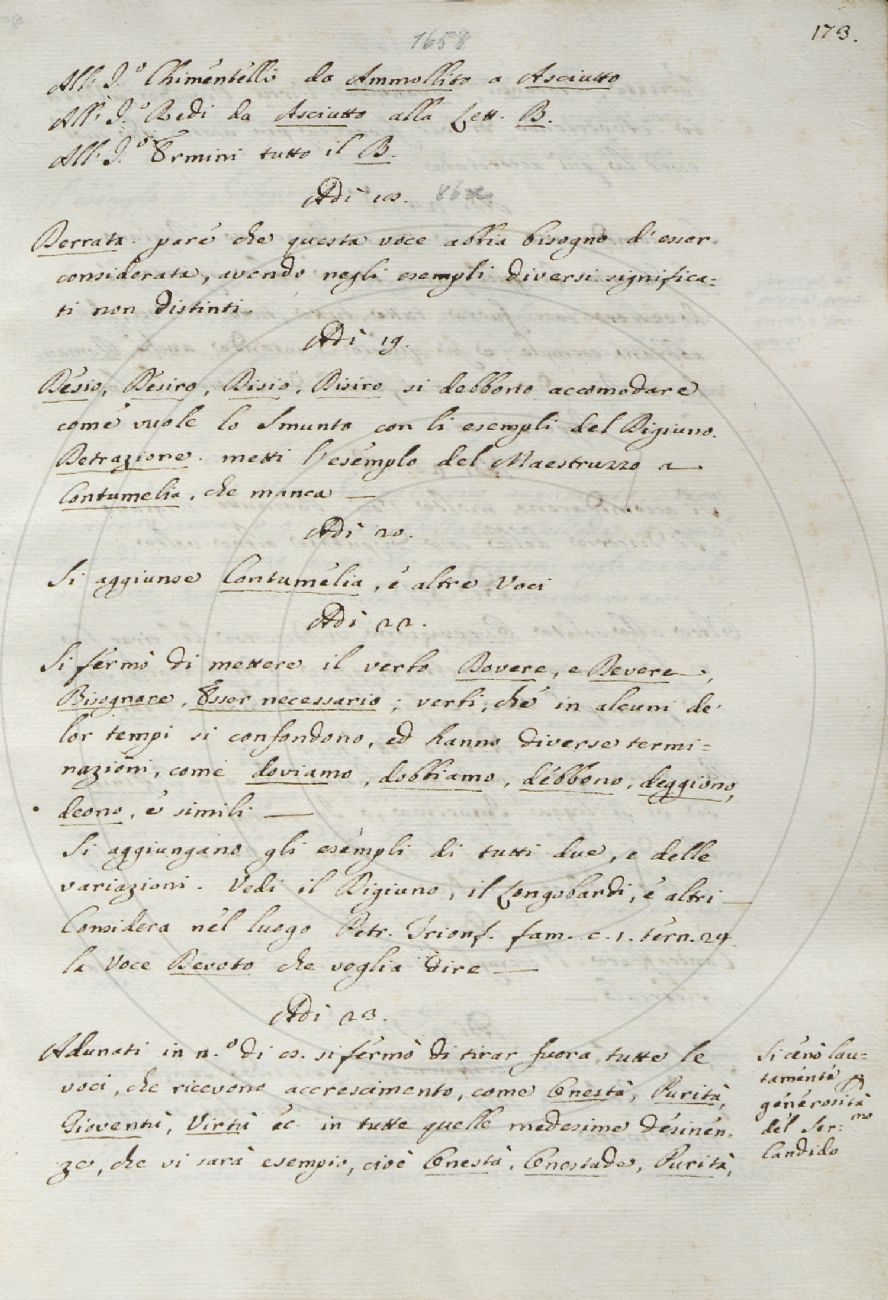 1658
173.
All' I.º Chimentelli da Ammollito a Asciutto
All' I.º Redi da Asciutto alla Lett. B.
All' I.º Ermini tutto il B.
Adì 10.
Berrata. pare che questa voce abbia bisogno d'esser
considerata, avendo negli esempli diversi significa=
ti non distinti.
Adì 19.
Desio, Desiro, Disio, Disiro si debbono accomodare
come vuole lo Smunto con li esempli del Digiuno.
Detrazione. metti l'esemplo del Maestruzzo a
Contumelia, che manca —
Adì 20.
Si aggiunse Contumelia, e altre Voci
Adì 22.
Si fermò di mettere il verbo Dovere, e Devere,
Bisognare, Esser necessario; verbi, che in alcuni de'
lor tempi si confondono, ed hanno diverse termi=
nazioni, come doviamo, dobbiamo, debbono, deggiono,
deono, e simili —
Si aggiungano gli esempli di tutti due, e delle
variazioni. Vedi il Digiuno, il Longobardi, e altri —
Considera nel luogo Petr. Trionf. fam. c. 1. tern. 24
la Voce Devoto che voglia dire —
Adì 23.
Adunati in n.º di 10. si fermò di tirar fuora tutte le
voci, che ricevono accrescimento, come Onestà, Purità,
Gioventù, Virtù ec. in tutte quelle medesime desinen=
ze, che vi sarà esempio, cioè Onestà, Onestade, Purità,
Si cenò lau=
tamente p
generosità
del Ser:mo
Candido